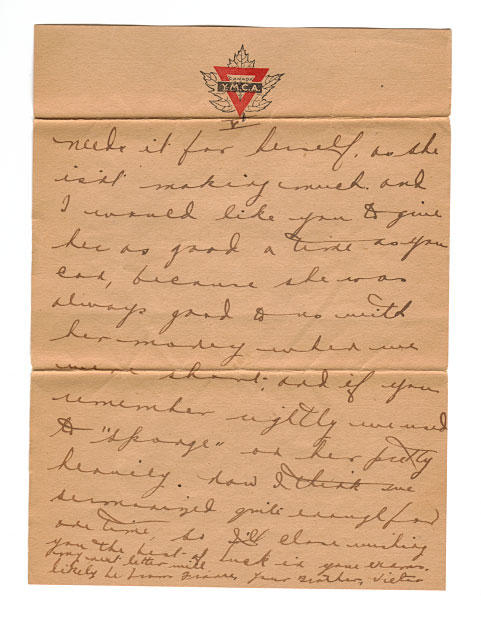 CANADA
Y.M.C.A.
V
needs it for herself, as she
isnt making much. and
I would like you to give
her as good a time as you
can, because she was
always good to us with
her money when we
were short; and if you
remember rightly we used
to "sponge" on her pretty
heavily. now I think we
sermonized quite enough for
one time, so I'll close wishing
you the best of luck in your exams.
my next letter will
likely be from France, Your Brother, Victor